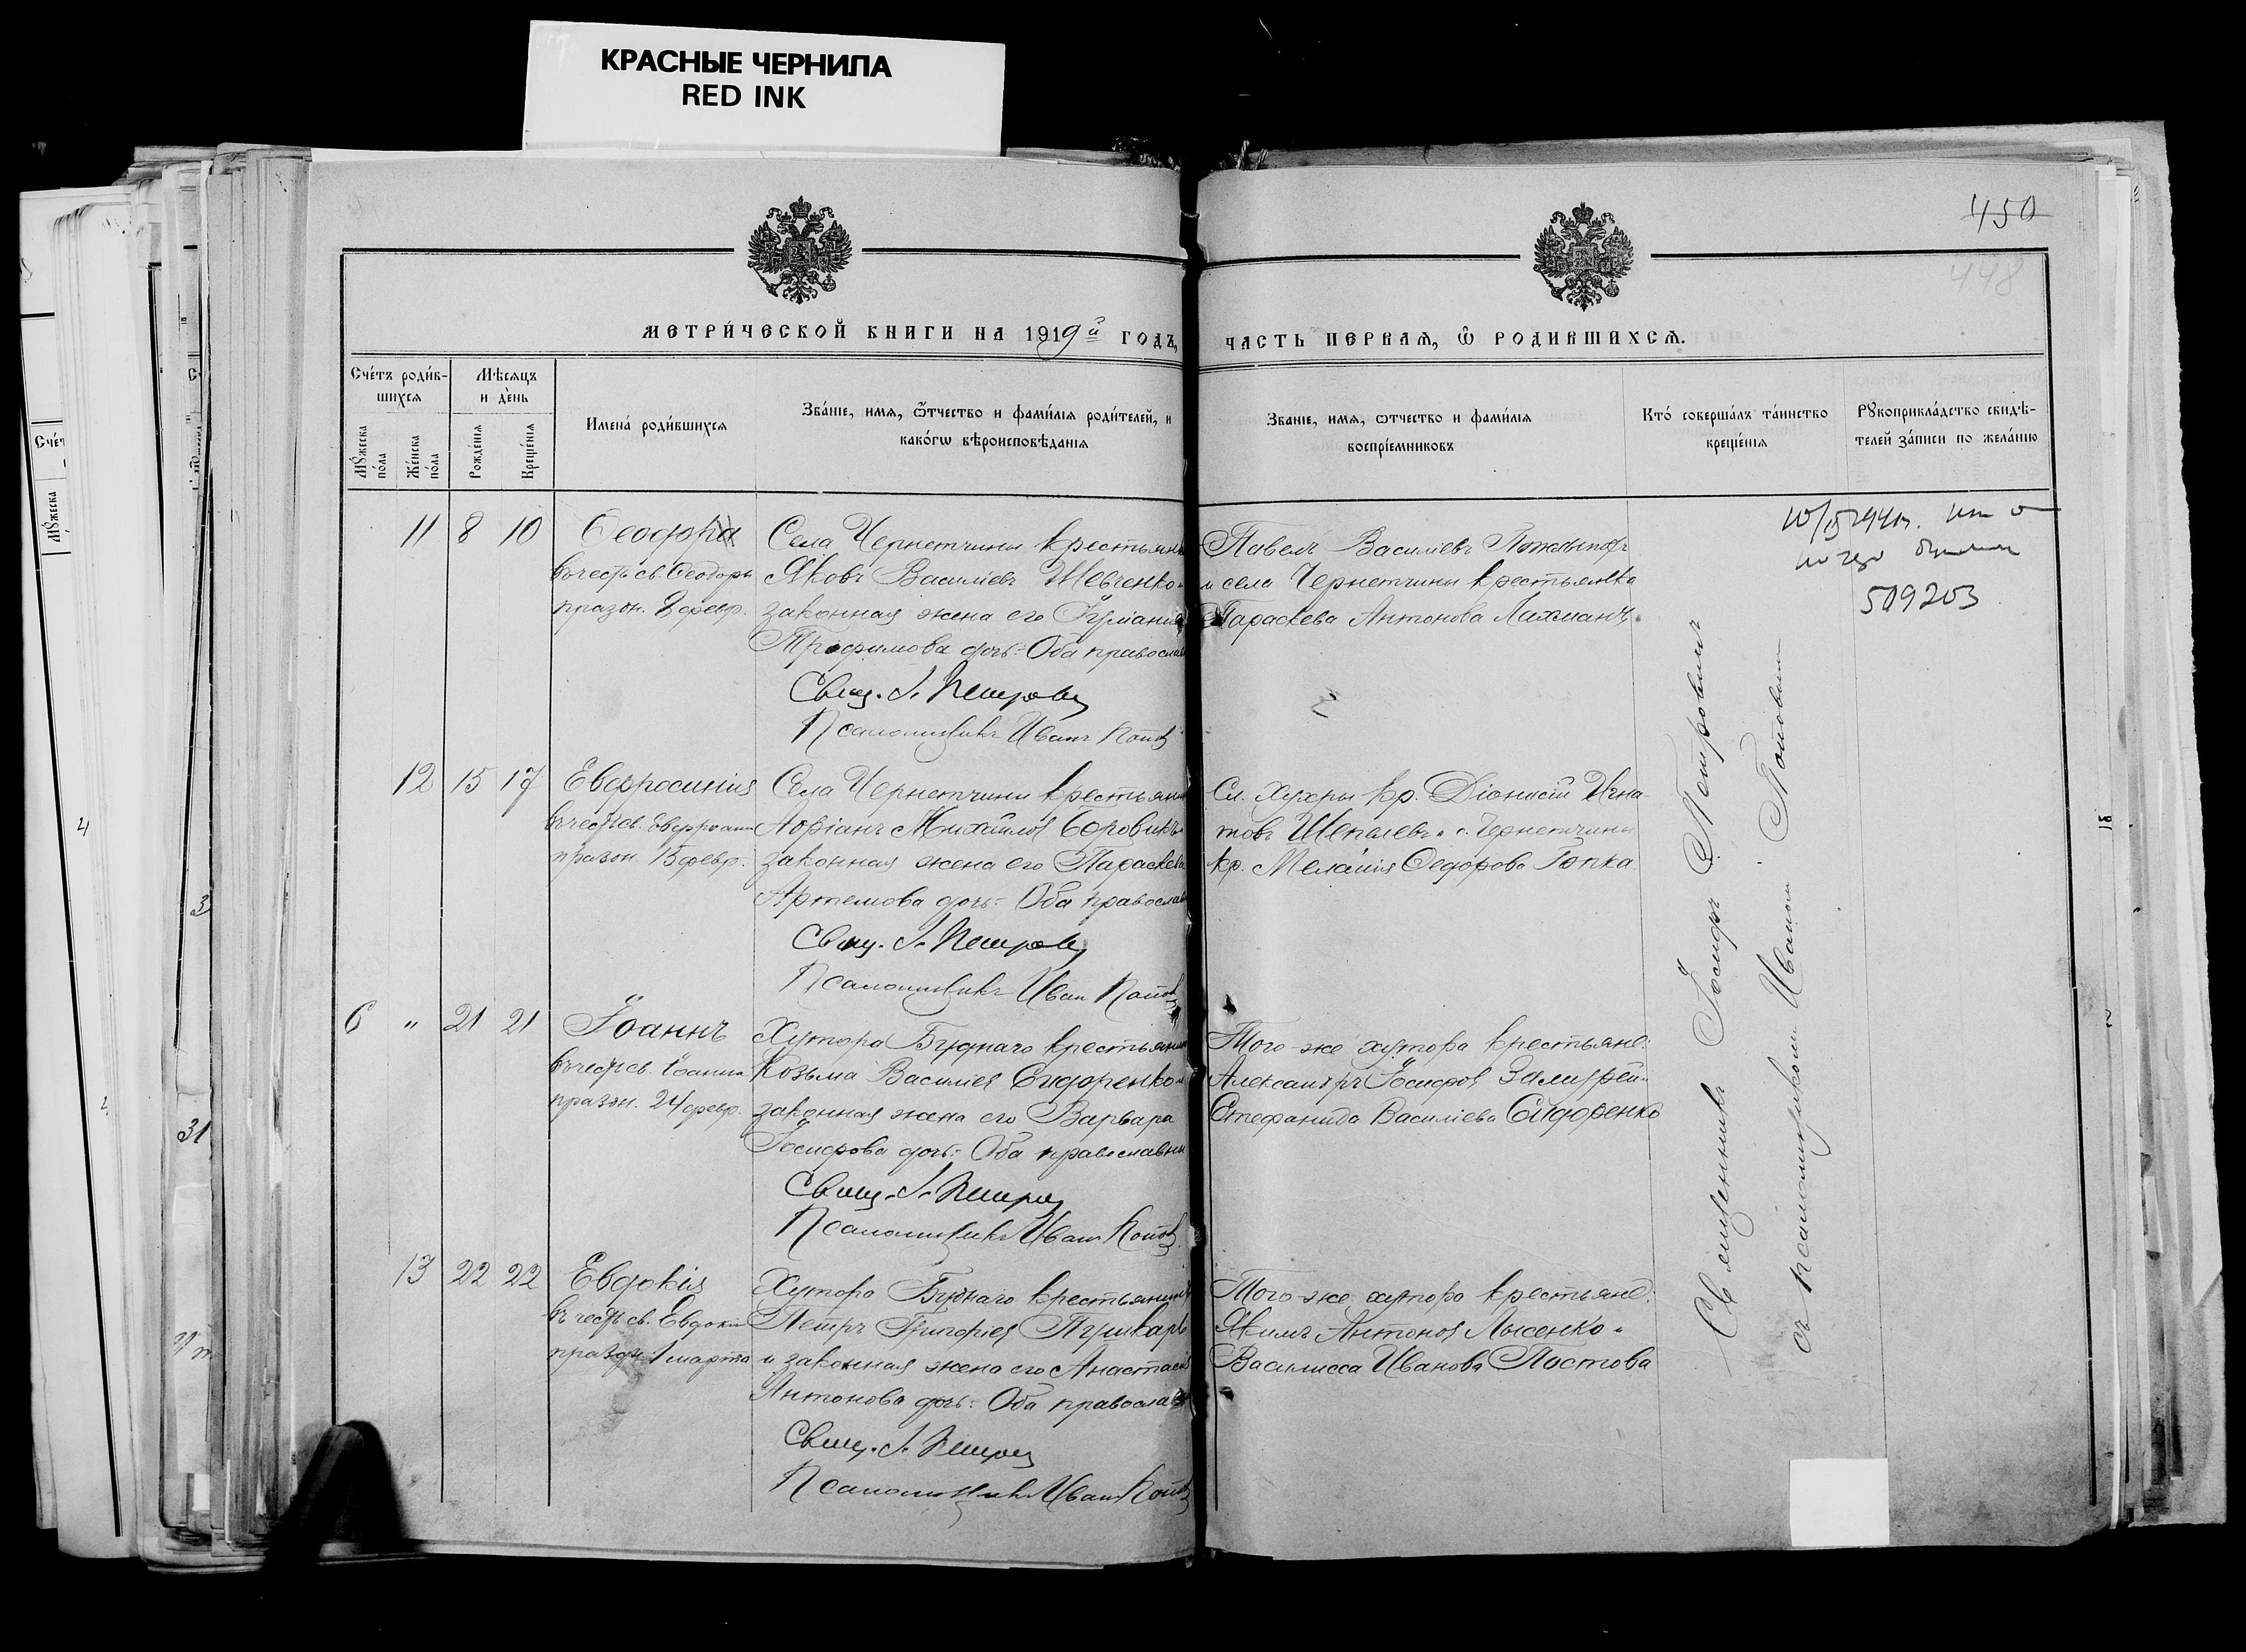 КРАСНЫЕ ЧЕРНИЛА
RED INK
450
448
МЕТРИ́ЧЕСКОЙ КНИГИ НА 1919й ГОДЪ,
ЧАСТЬ ПЕРВАЯ, Ѡ РОДИВШИХСЯ.
Счéтъ роди́в-
шихся
Мѣсяцъ
и де́нь
Мꙋ́жеска
по́ла
Же́нска
по́ла
Рожде́нія
Креще́нія
Имена́ роди́вшихся
Зва́ніе, имя, ѻ́тчество и фами́лія роди́телей, и
како́гѡ вѣроисповѣ́данія
Зва́ніе, имя, ѻтчество и фами́лія
воспріе́мниковъ
Кто́ соверша́лъ та́инство
креще́нія
Рꙋкоприкла́дство свидѣ́-
телей за́писи по жела́нію
11 8 10 Ѳеодора
въ честь св. Ѳеодоры
празон. 8 февр.
Села Чернетчины крестьянинъ
Яковъ Василіевъ Шевченко и
законная жена его Іуліанія
Трофимова дочь: Оба православ
Свящ. І. Петровъ
Псаломщикъ Иванъ Поповъ
Павелъ Василіевъ
и села Чернетчины крестьянка
Параскева Антонова
509203
12 15 17 Евфросинія
въ честь св. Евфросин
празон. 15 февр.
Села Чернетчины крестьянин
Адріанъ Михайловъ Боровикъ и
законная жена его Параскева
Артемова дочь: Оба православ
Свящ. І. Петровъ
Псаломщикъ Иван Поповъ
Сл. кр. Діонисій Игна-
товъ Шепелевъ и с. Чернетчины
кр. Меланія Ѳеодорова Гопка
6 " 21 21 Іоаннъ
въ честь св. Іоанна
празон. 24 февр.
Хутора Буднаго крестьянин
Козьма Василіев Сидоренко и
законная жена его Варвара
Іосифова дочь: Оба православны
Свящ. І. Петровъ
Псаломщикъ Иванъ Поповъ
Того-же хутора крестьяне:
Александръ Іосифов и
Стефанида Василіева Сидоренко
13 22 22 Евдокія
въ честь св. Евдокіи
празон. 1 марта
Хутора Буднаго крестьянинъ
Петръ Григоріев Пушкарь
и законная жена его Анастасія
Антонова дочь: Оба православ
Свящ. І. Петровъ
Псаломщикъ Иванъ Поповъ
Того-же хутора крестьяне:
Якимъ Антонов Лысенко и
Василисса Иванова Постова
Священникъ Іосифъ Петровъ
съ псаломщикомъ Иваномъ Поповымъ